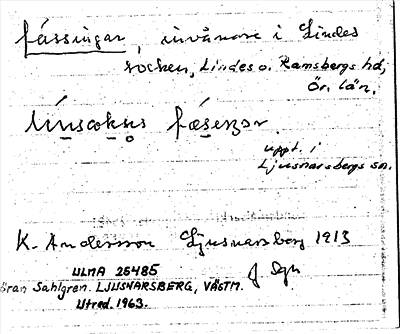 fässingar, invånare i Lindes
socken, Lindes o. Ramsbergs hd,
Ör. län.
uppt. i
Ljusnarsbergs sn.
K. Andersson Ljusnarsberg 1913
ULMA 26485
öran Sahlgren. LJUSNARSBERG, VÄSTM.
Utred. 1963.